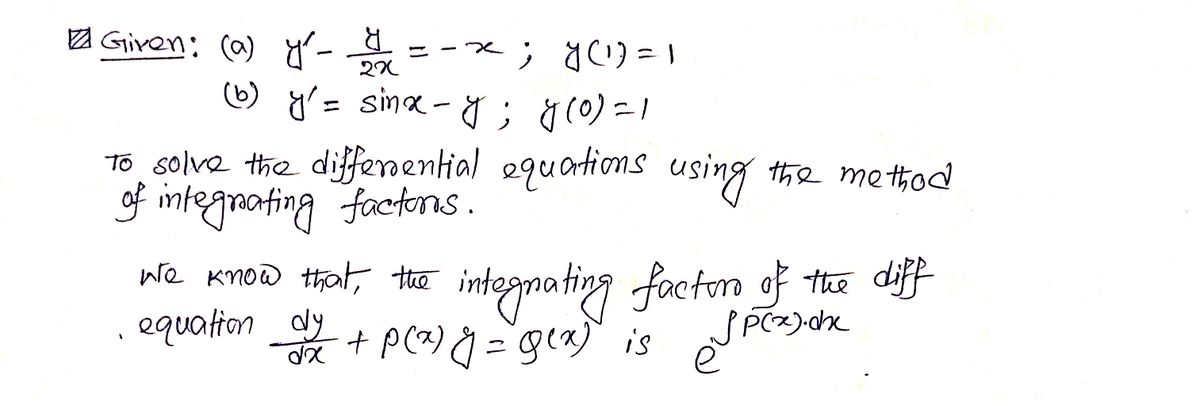 Given: (a) y' - y/2x = -x ; y(1) = 1
(b) y' = sinx - y ; y(0) = 1
To solve the differential equations using the method
of integrating factors.
We know that, the integrating factor of the diff
equation dy/dx + P(x) y = Q(x) is e^∫P(x).dx